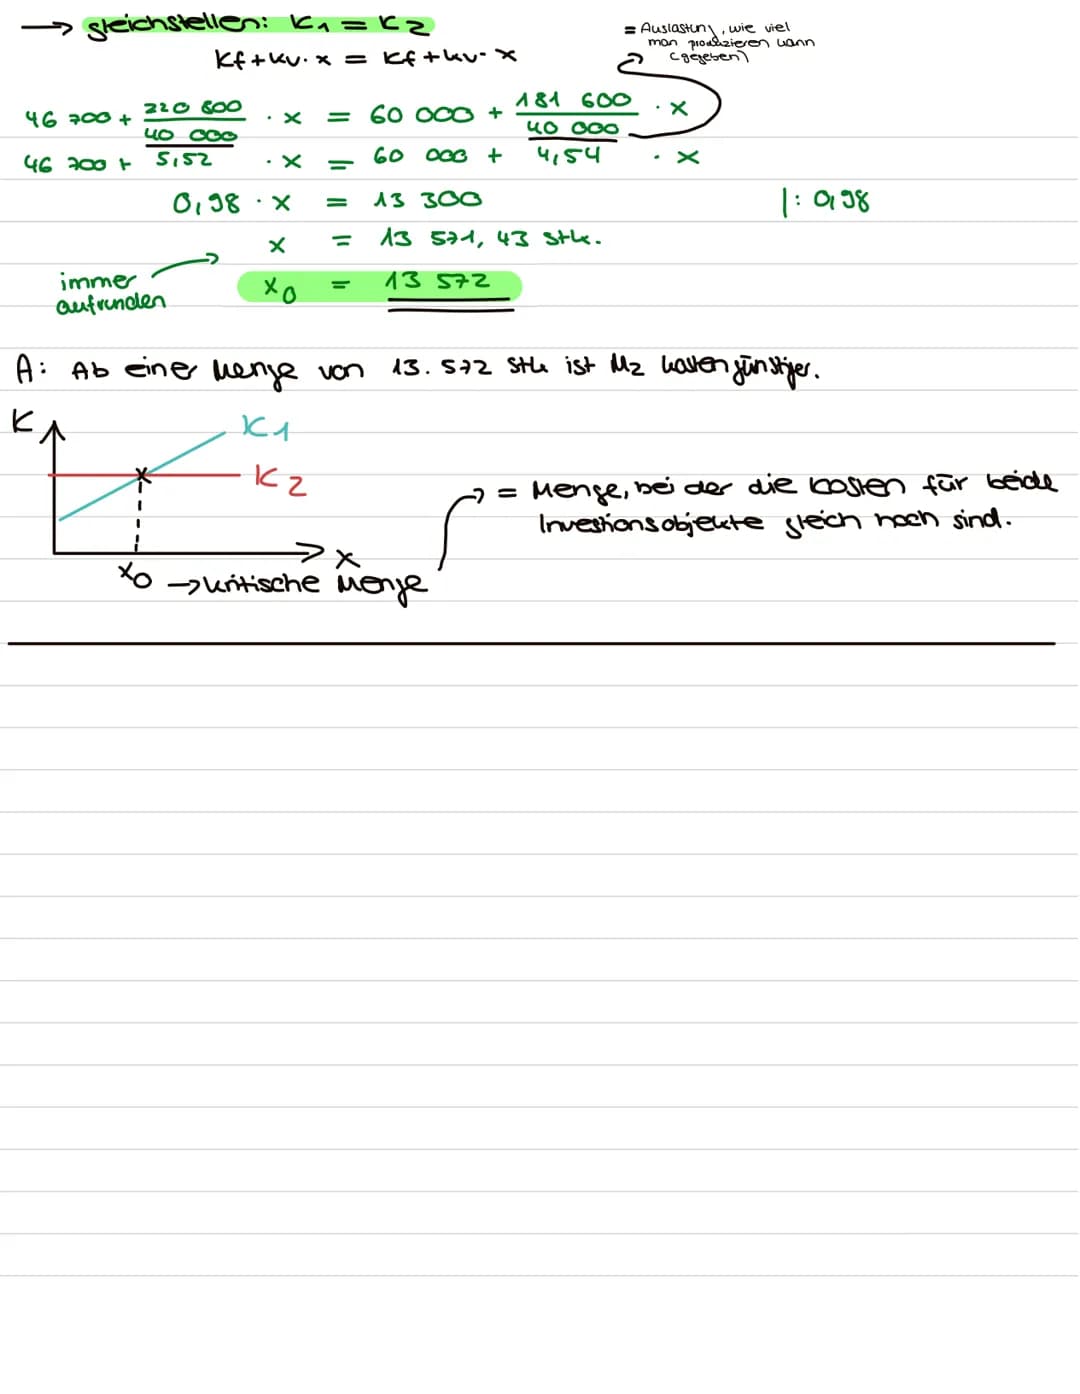 → gleichstellen: K1 = K2
= Auslastung, wie viel
man produzieren kann
(gegeben)
Kf + kv · x = Kf + kv · x
46 700 + 220 800 / 40 000 · x = 60 000 + 181 600 / 40 000 · x
46 700 + 5,52 · x = 60 000 + 4,54 · x
0,98 · x = 13 300 |: 0,98
x = 13 571,43 Stk.
immer
aufrunden
x0 = 13 572
A: Ab einer Menge von 13.572 Stk ist M2 kostengünstiger.
K
K1
K2
= Menge, bei der die Kosten für beide
Investionsobjekte gleich hoch sind.
x
x0 → kritische Menge